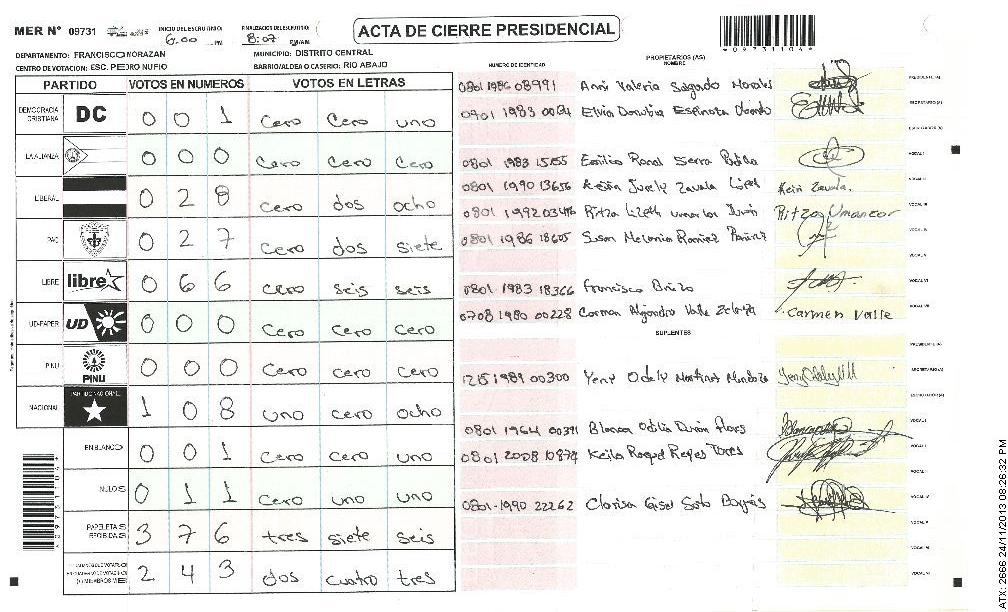 MER N° 09731 INICIO DEL ESCRUTINIO: 6:00 PM FINALIZACION DEL ESCRUTINIO: 8:07 PM/AM
ACTA DE CIERRE PRESIDENCIAL
09731104
DEPARTAMENTO: FRANCISCO MORAZAN MUNICIPIO: DISTRITO CENTRAL
CENTRO DE VOTACION: ESC. PEDRO NUFIO BARRIO/ALDEA O CASERIO: RIO ABAJO
NUMERO DE IDENTIDAD PROPIETARIOS (AS) NOMBRE
PARTIDO VOTOS EN NUMEROS VOTOS EN LETRAS
DEMOCRACIA CRISTIANA DC 0 0 1 Cero Cero uno
LA ALIANZA 0 0 0 Cero Cero Cero
LIBERAL 0 2 8 Cero dos ocho
PAC 0 2 7 Cero dos siete
LIBRE libre 0 6 6 Cero seis seis
UD-FAPER UD 0 0 0 Cero cero cero
PINU PINU 0 0 0 Cero cero cero
NACIONAL PARTIDO NACIONAL 1 0 8 uno cero ocho
EN BLANCO 0 0 1 Cero Cero uno
NULOS 0 1 1 Cero uno uno
PAPELETAS RECIBIDAS 3 7 6 tres siete seis
2 4 3 dos cuatro tres
0801 1986 08991 Valeria Salgado Morales PRESIDENTE (A)
Elvin SECRETARIO (A)
ESCRUTADOR (A)
0801 1983 Emilio VOCAL I
0801 1990 13656 Keisi Zavala VOCAL II
Keisi Zavala.
Ritza Lizeth VOCAL III
Ritza Umanzor
0801 1986 18605 Susan Melania Ramirez VOCAL IV
VOCAL V
0801 1983 18366 Francisco VOCAL VI
0708 1980 00228 Carmen Alejandra Valle VOCAL VII
Carmen Valle
SUPLENTES
PRESIDENTE (A)
1215 1989 00300 Yeny Odely Martinez Mendoza SECRETARIO (A)
ESCRUTADOR (A)
0801 1964 00391 Blanca Odilia Durón Flores VOCAL I
0801 2008 10874 Keila Raquel Reyes Torres
0801-1990 22262 Clarisa Gisel Soto VOCAL IV
VOCAL V
VOCAL VI
VOCAL VII
ATX: 2666 24/11/2013 08:26:32 PM